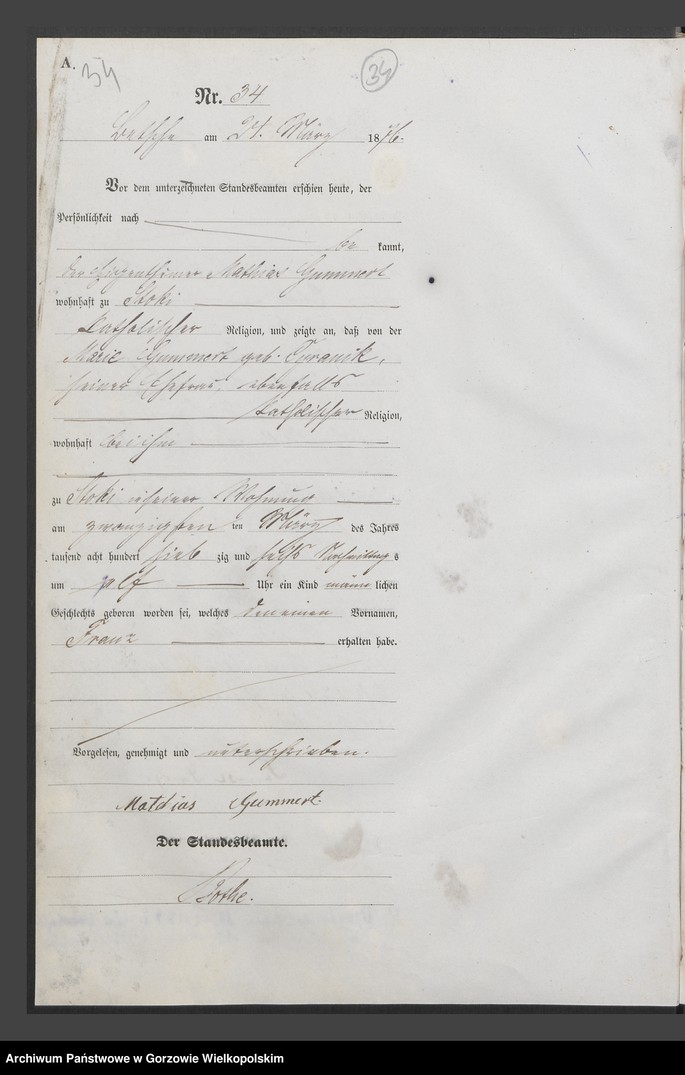 A.
34
34
Nr. 34.
Betsche am 21. März 1876.
Vor dem unterzeichneten Standesbeamten erschien heute, der
Persönlichkeit nach
be kannt,
der Eigenthümer Mathias Gummert
wohnhaft zu Stoki
katholischer Religion, und zeigte an, daß von der
Marie Gummert geb. Tyranik,
seiner Ehefrau, ebenfalls
katholischer Religion,
wohnhaft bei ihm
zu Stoki in seiner Wohnung
am zwanzigsten ten März des Jahres
tausend acht hundert sieb zig und sechs Vormittag s
um elf Uhr ein Kind männ lichen
Geschlechts geboren worden sei, welches den einen Vornamen,
Franz erhalten habe.
Vorgelesen, genehmigt und unterschrieben.
Matdias Gummert.
Der Standesbeamte.
Bothe.
Archiwum Państwowe w Gorzowie Wielkopolskim